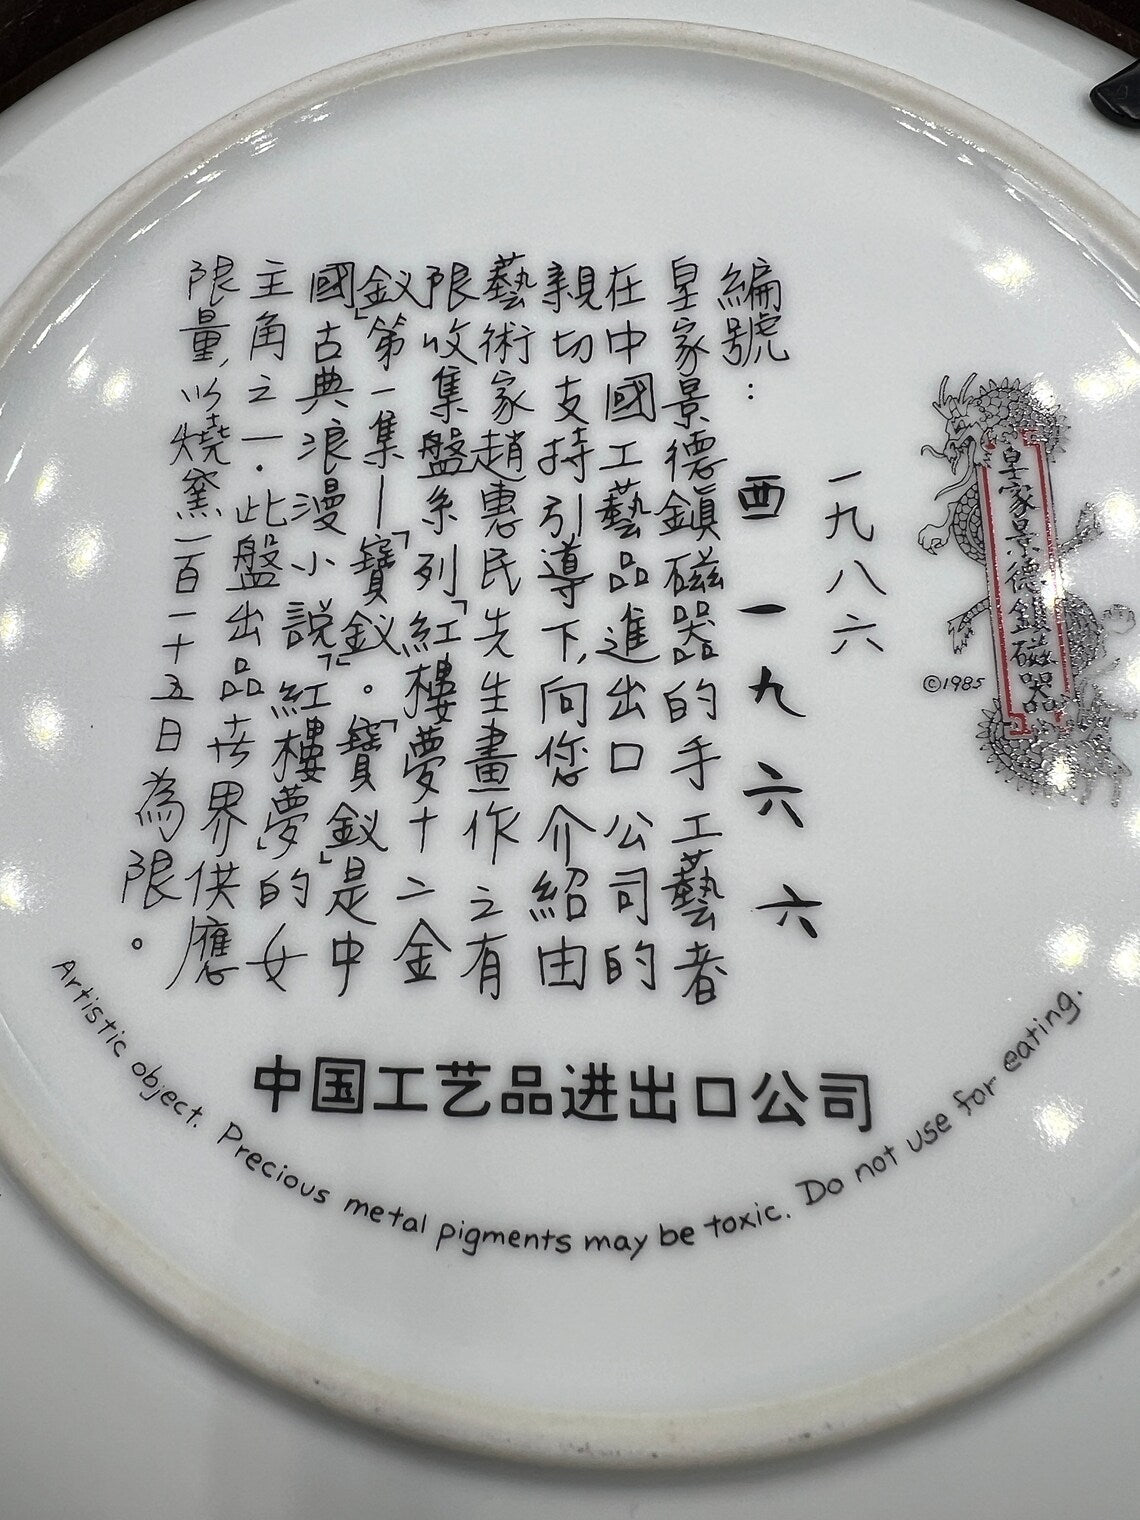 皇家景德鎮磁器
©1985
一九八六
編號: 西一九六六
皇家景德鎮磁器的手工藝者
在中國工藝品進出口公司的
親切支持引導下,向您介紹由
藝術家趙惠民先生畫作之有
限收集盤系列「紅樓夢十二金
釵」第一集—「寶釵」。「寶釵」是中
國古典浪漫小說「紅樓夢」的女
主角之一.此盤出品世界供應
限量,以燒窯一百一十五日為限。
中国工艺品进出口公司
Artistic object. Precious metal pigments may be toxic. Do not use for eating.